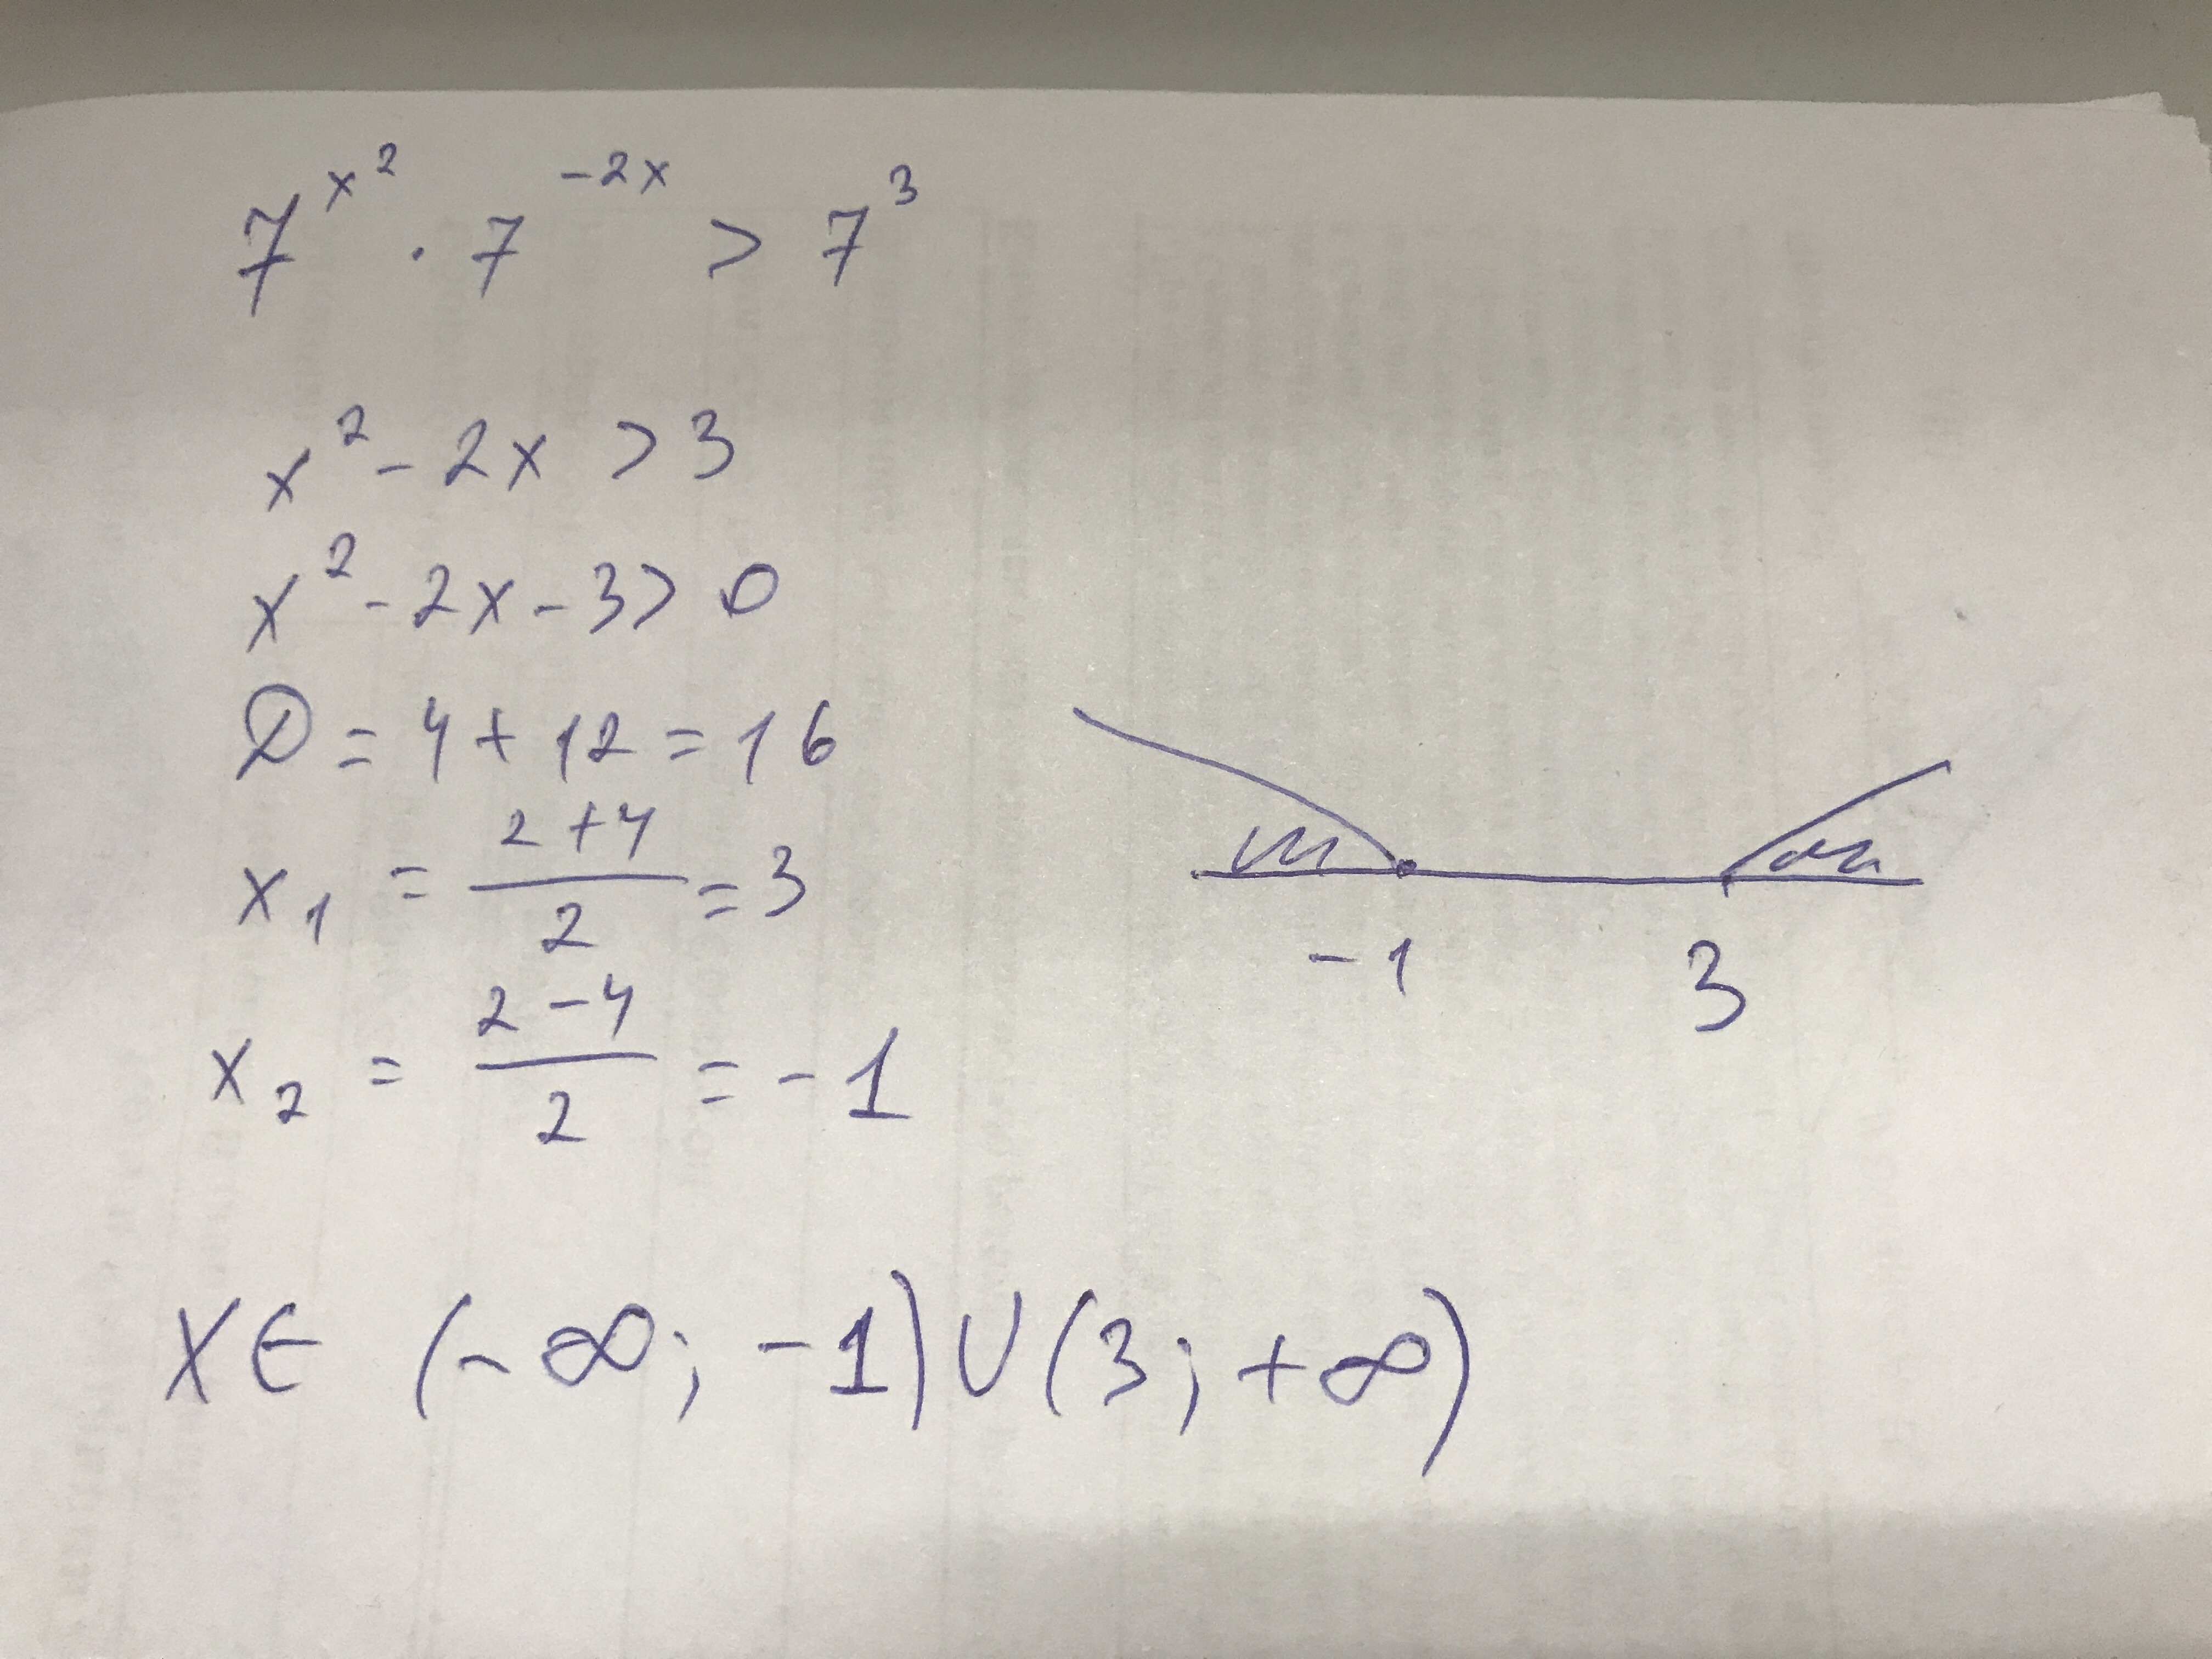 7^{x^2} · 7^{-2x} > 7^3
x^2 - 2x > 3
x^2 - 2x - 3 > 0
D = 4 + 12 = 16
x_1 = \frac{2+4}{2} = 3
x_2 = \frac{2-4}{2} = -1
-1 3
x ∈ (-∞; -1) ∪ (3; +∞)